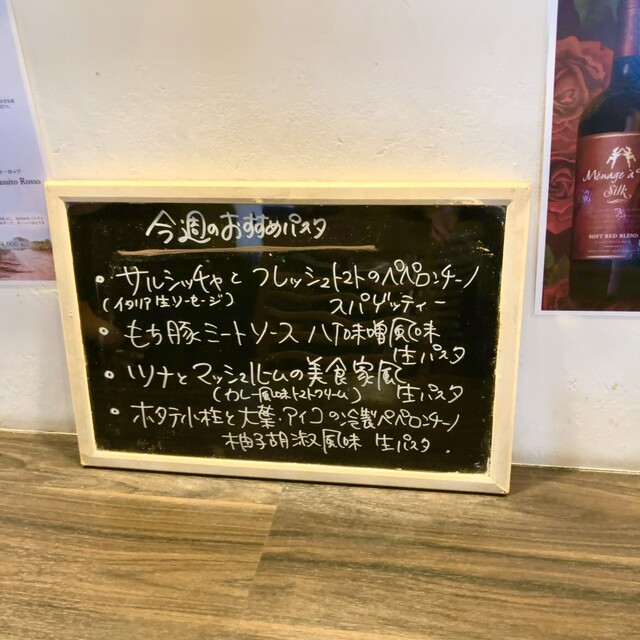 今週のおすすめパスタ
• サルシッチャと フレッシュトマトのペペロンチーノ
(イタリア生ソーセージ) スパゲッティー
• もち豚ミートソース 八丁味噌風味
生パスタ
• ツナとマッシュルームの美食家風
(カレー風味トマトクリーム) 生パスタ
• ホタテ小柱と大葉・アイコの冷製ペペロンチーノ
柚子胡椒風味 生パスタ.
Ménage à
Silk
SOFT RED BLEND
assito Rosso